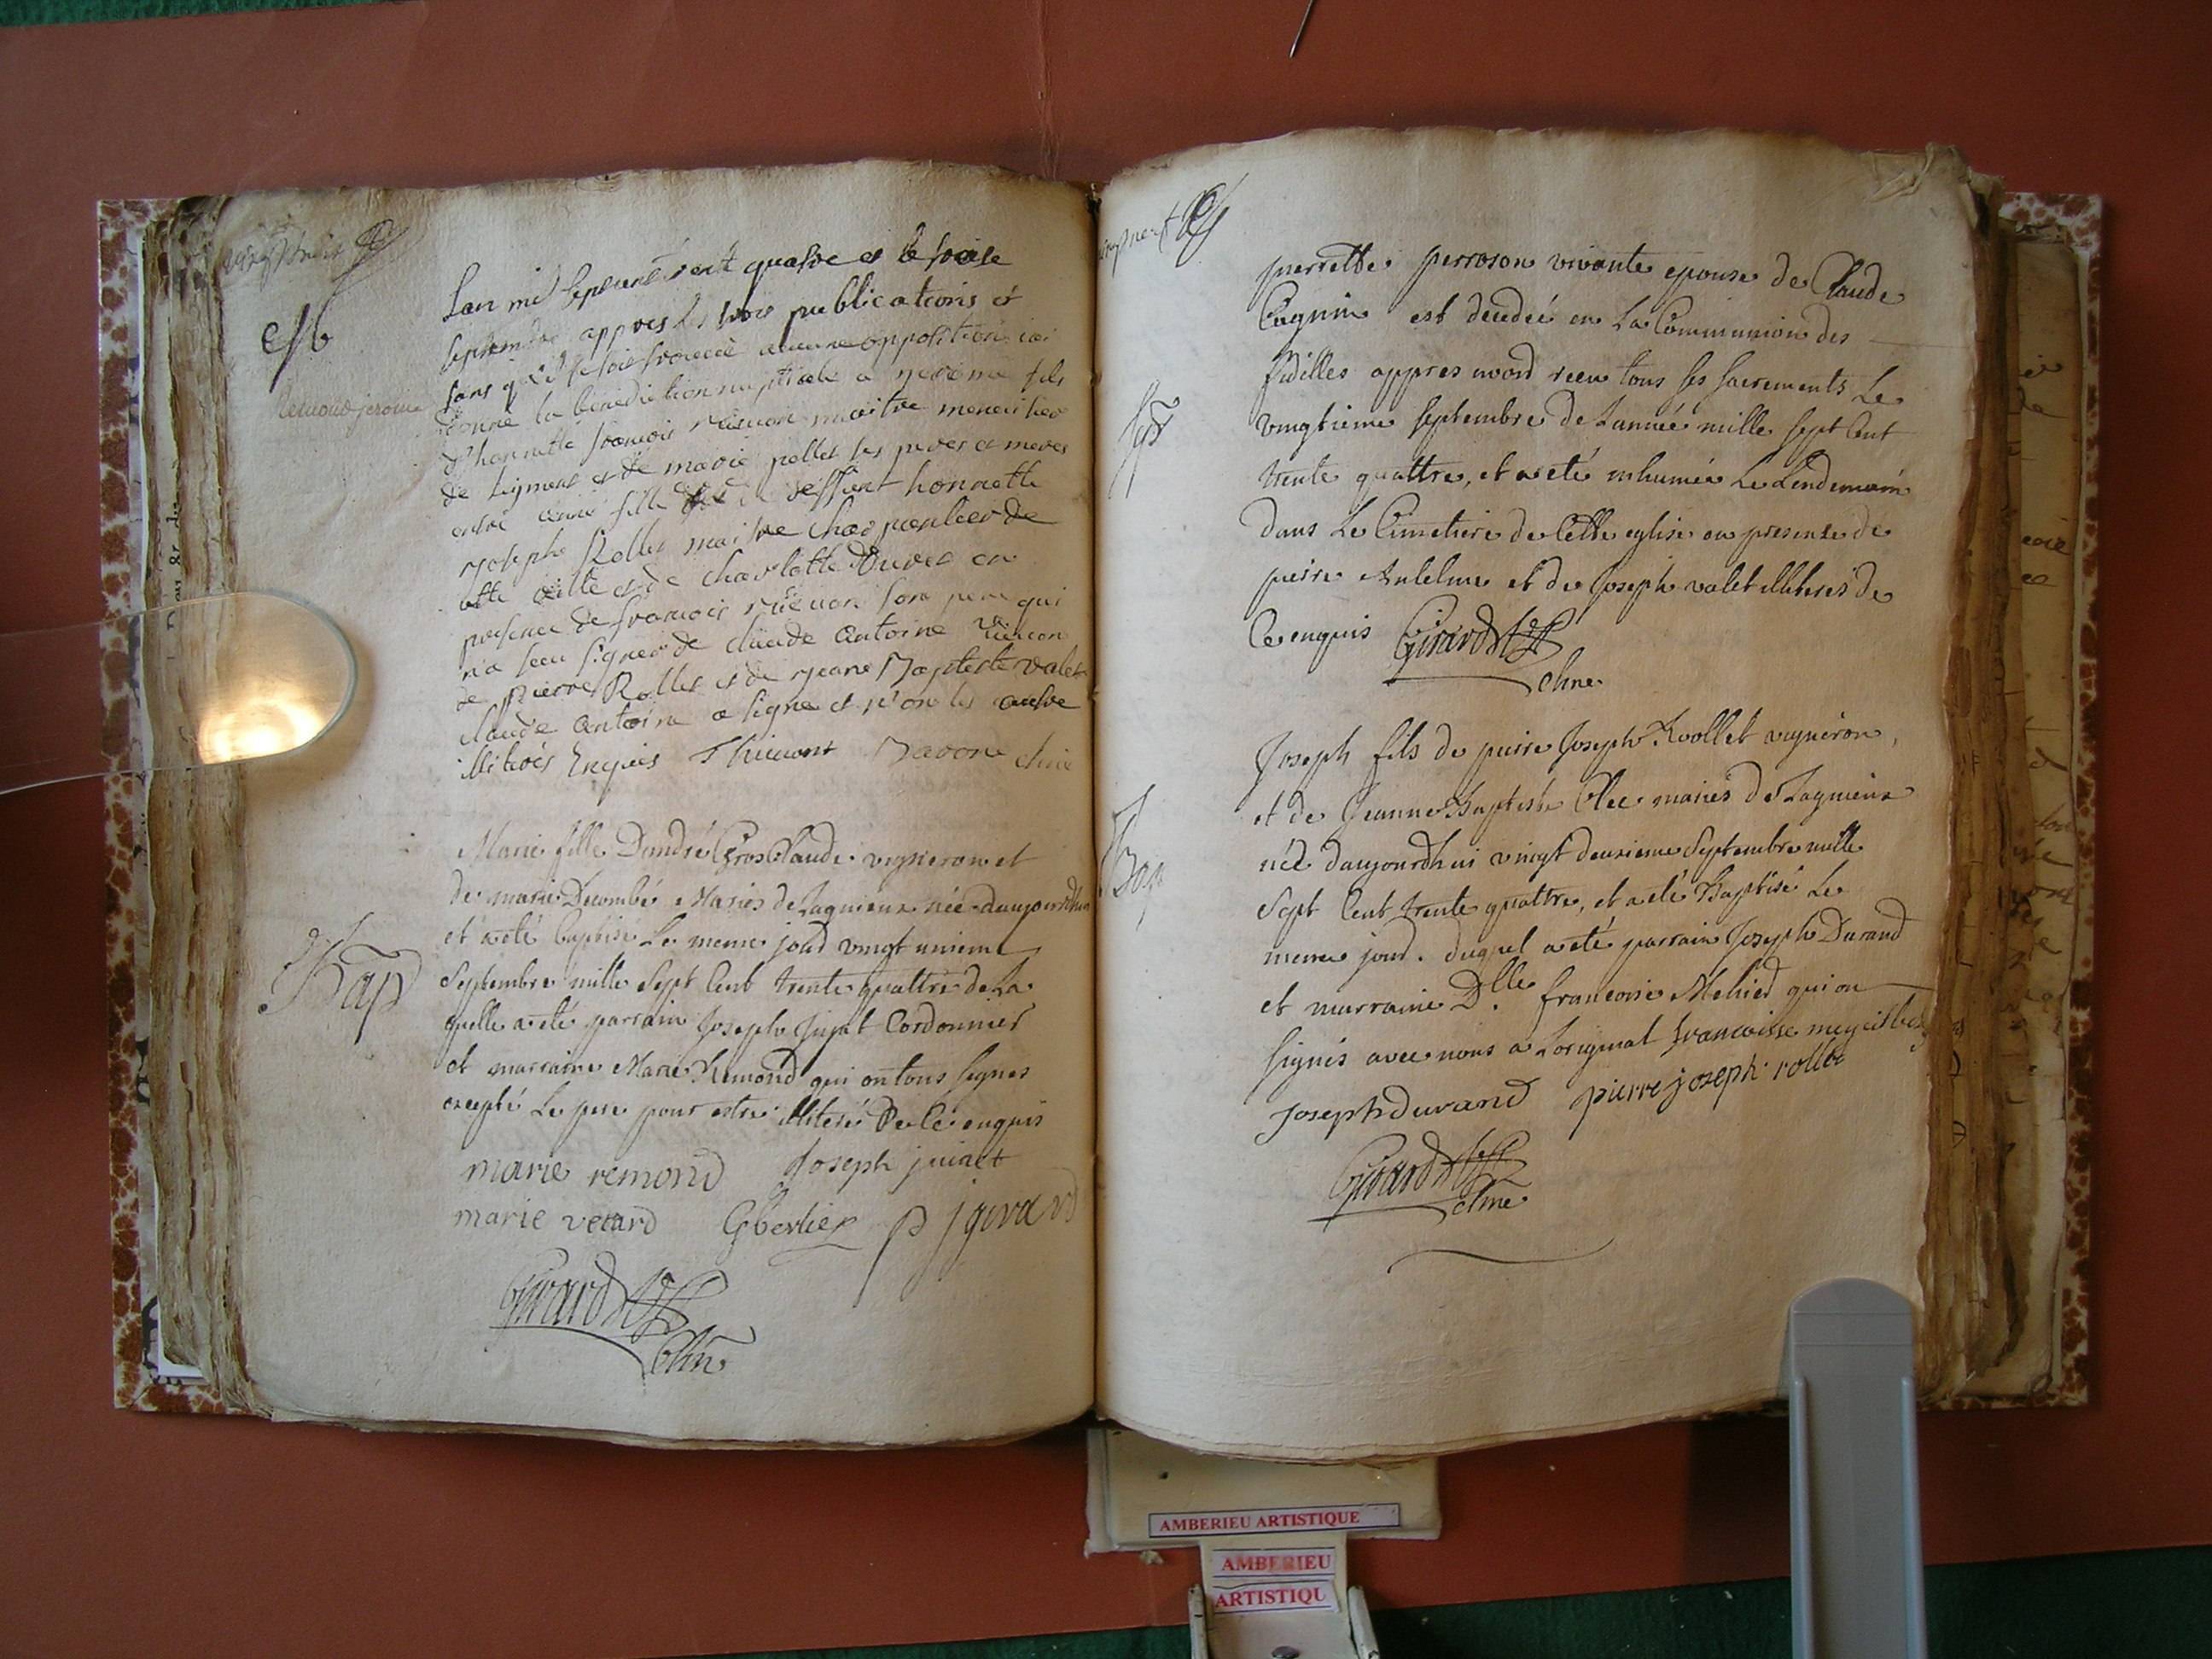 Lan mil sept cent trente quatre et le seise
septembre appres les trois publications et
sans qu'il se soit trouvée aucune opposition iai
donné la bénédiction nuptiale a jerome fils
d'honnette francois maitre menuisier
de Lagnieu et de marie pellet ses peres et meres
entre anne fille de deffunt honnette
joseph Rollet maitre charpentier de
cette ville et de charlotte en
presence de francois son pere qui
n'a sceu signer de claude Antoine
de pierre Rollet et de jean Baptiste valet
claude Antoine a signé et non les autre
illiterés Enquis Thieuont
Marie fille Dandré Gros Claude vigneron et
de marie Decombe Mariés de Lagnieux née daujourdhui
et a eté baptisé Le meme jour vingt unieme
Septembre mille Sept Cent trente quattre de La
quelle a eté parrain Joseph Jujat Cordonnier
et marraine Marie Remond qui on tous signes
excepté Le pere pour estre illiteré De Ce enquis
Bap
marie remond Joseph juinet
marie vetard Gberlier p j girard
Girard
perrette perroson vivante epouse de Claude
Cagnin est decedée en La Communion des
fidelles appres avoir receu tous ses sacrements Le
vingtieme septembre de Lannée mille sept Cent
trente quattre, et a eté inhumée Le Lendemain
dans Le Cimetiere de Cette eglise en presence de
pierre Anselme et de Joseph valet illiterés de
Ce enquis Girard
Joseph fils de pierre Joseph Roollet vigneron,
et de Jeanne Baptiste mariés de Lagnieux
née daujourdhui vingt deuxieme Septembre mille
Sept Cent trente quattre, et a eté Baptisé Le
meme jour. duquel a eté parrain Joseph Durand
et marraine D.lle francoise qui on
signés avec nous a Loriginal francoisse
Bap
joseph durand pierre joseph rollet
Girard
AMBERIEU ARTISTIQUE
AMBERIEU
ARTISTIQU